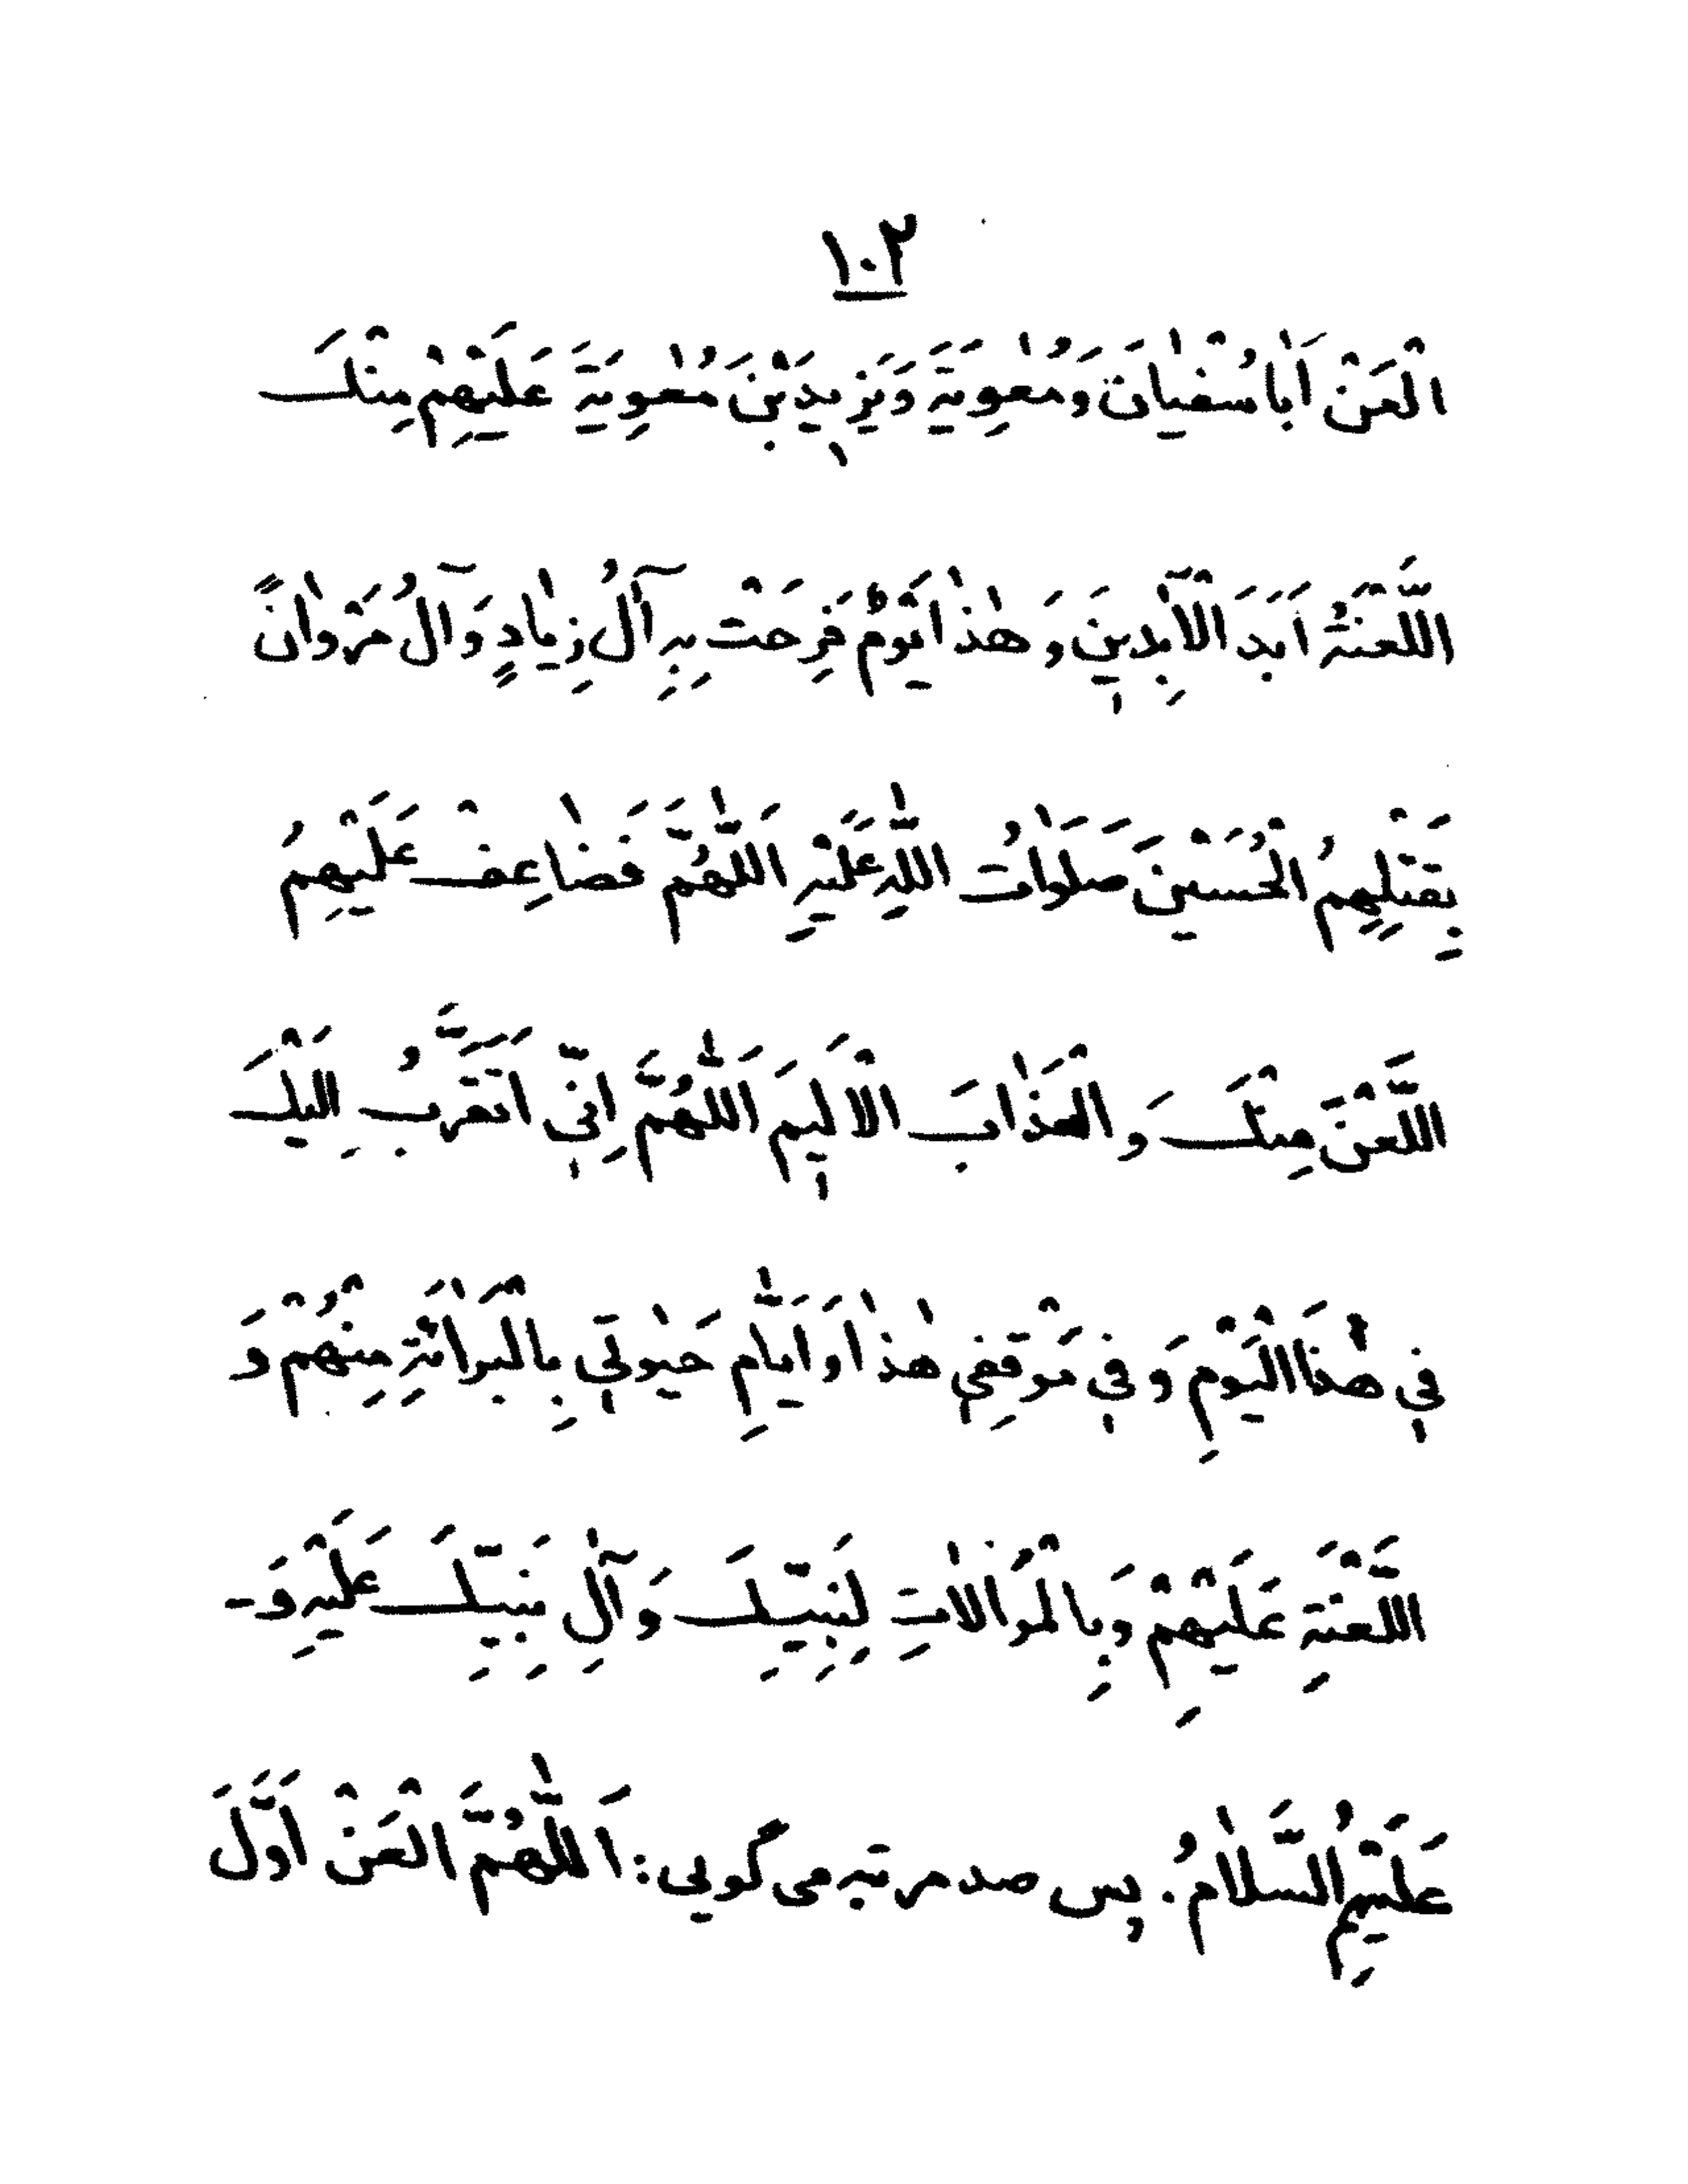 ١٠٢
الْعَنْ اَبٰا سُفْيٰانَ وَ مُعٰوِيَةَ وَ يَزيدَ بْنَ مُعٰوِيَةَ عَلَيْهِمْ مِنْكَ
اللَّعْنَةُ اَبَدَ الْآبِدينَ وَ هٰذٰا يَوْمٌ فَرِحَتْ بِهِ آلُ زِيٰادٍ وَ آلُ مَرْوٰانً
بِقَتْلِهِمُ الْحُسَيْنَ صَلَوٰاتُ اللّٰهِ عَلَيْهِ اللّٰهُمَّ فَضٰاعِفْ عَلَيْهِمُ
اللَّعْنَ مِنْكَ وَ الْعَذٰابَ الْاَليمَ اَللّٰهُمَّ اِنّي اَتَقَرَّبُ اِلَيْكَ
في هٰذَا الْيَوْمِ وَ في مَوْقِفي هٰذٰا وَ اَيّٰامِ حَيٰوتي بِالْبَرٰائَةِ مِنْهُمْ وَ
اللَّعْنَةِ عَلَيْهِمْ وَ بِالْمُوٰالاٰتِ لِنَبِيِّكَ وَ آلِ نَبِيِّكَ عَلَيْهِ وَ-
عَلَيْهِمُ السَّلاٰمُ. پس صد مرتبه می گویی: اَللّٰهُمَّ الْعَنْ اَوَّلَ